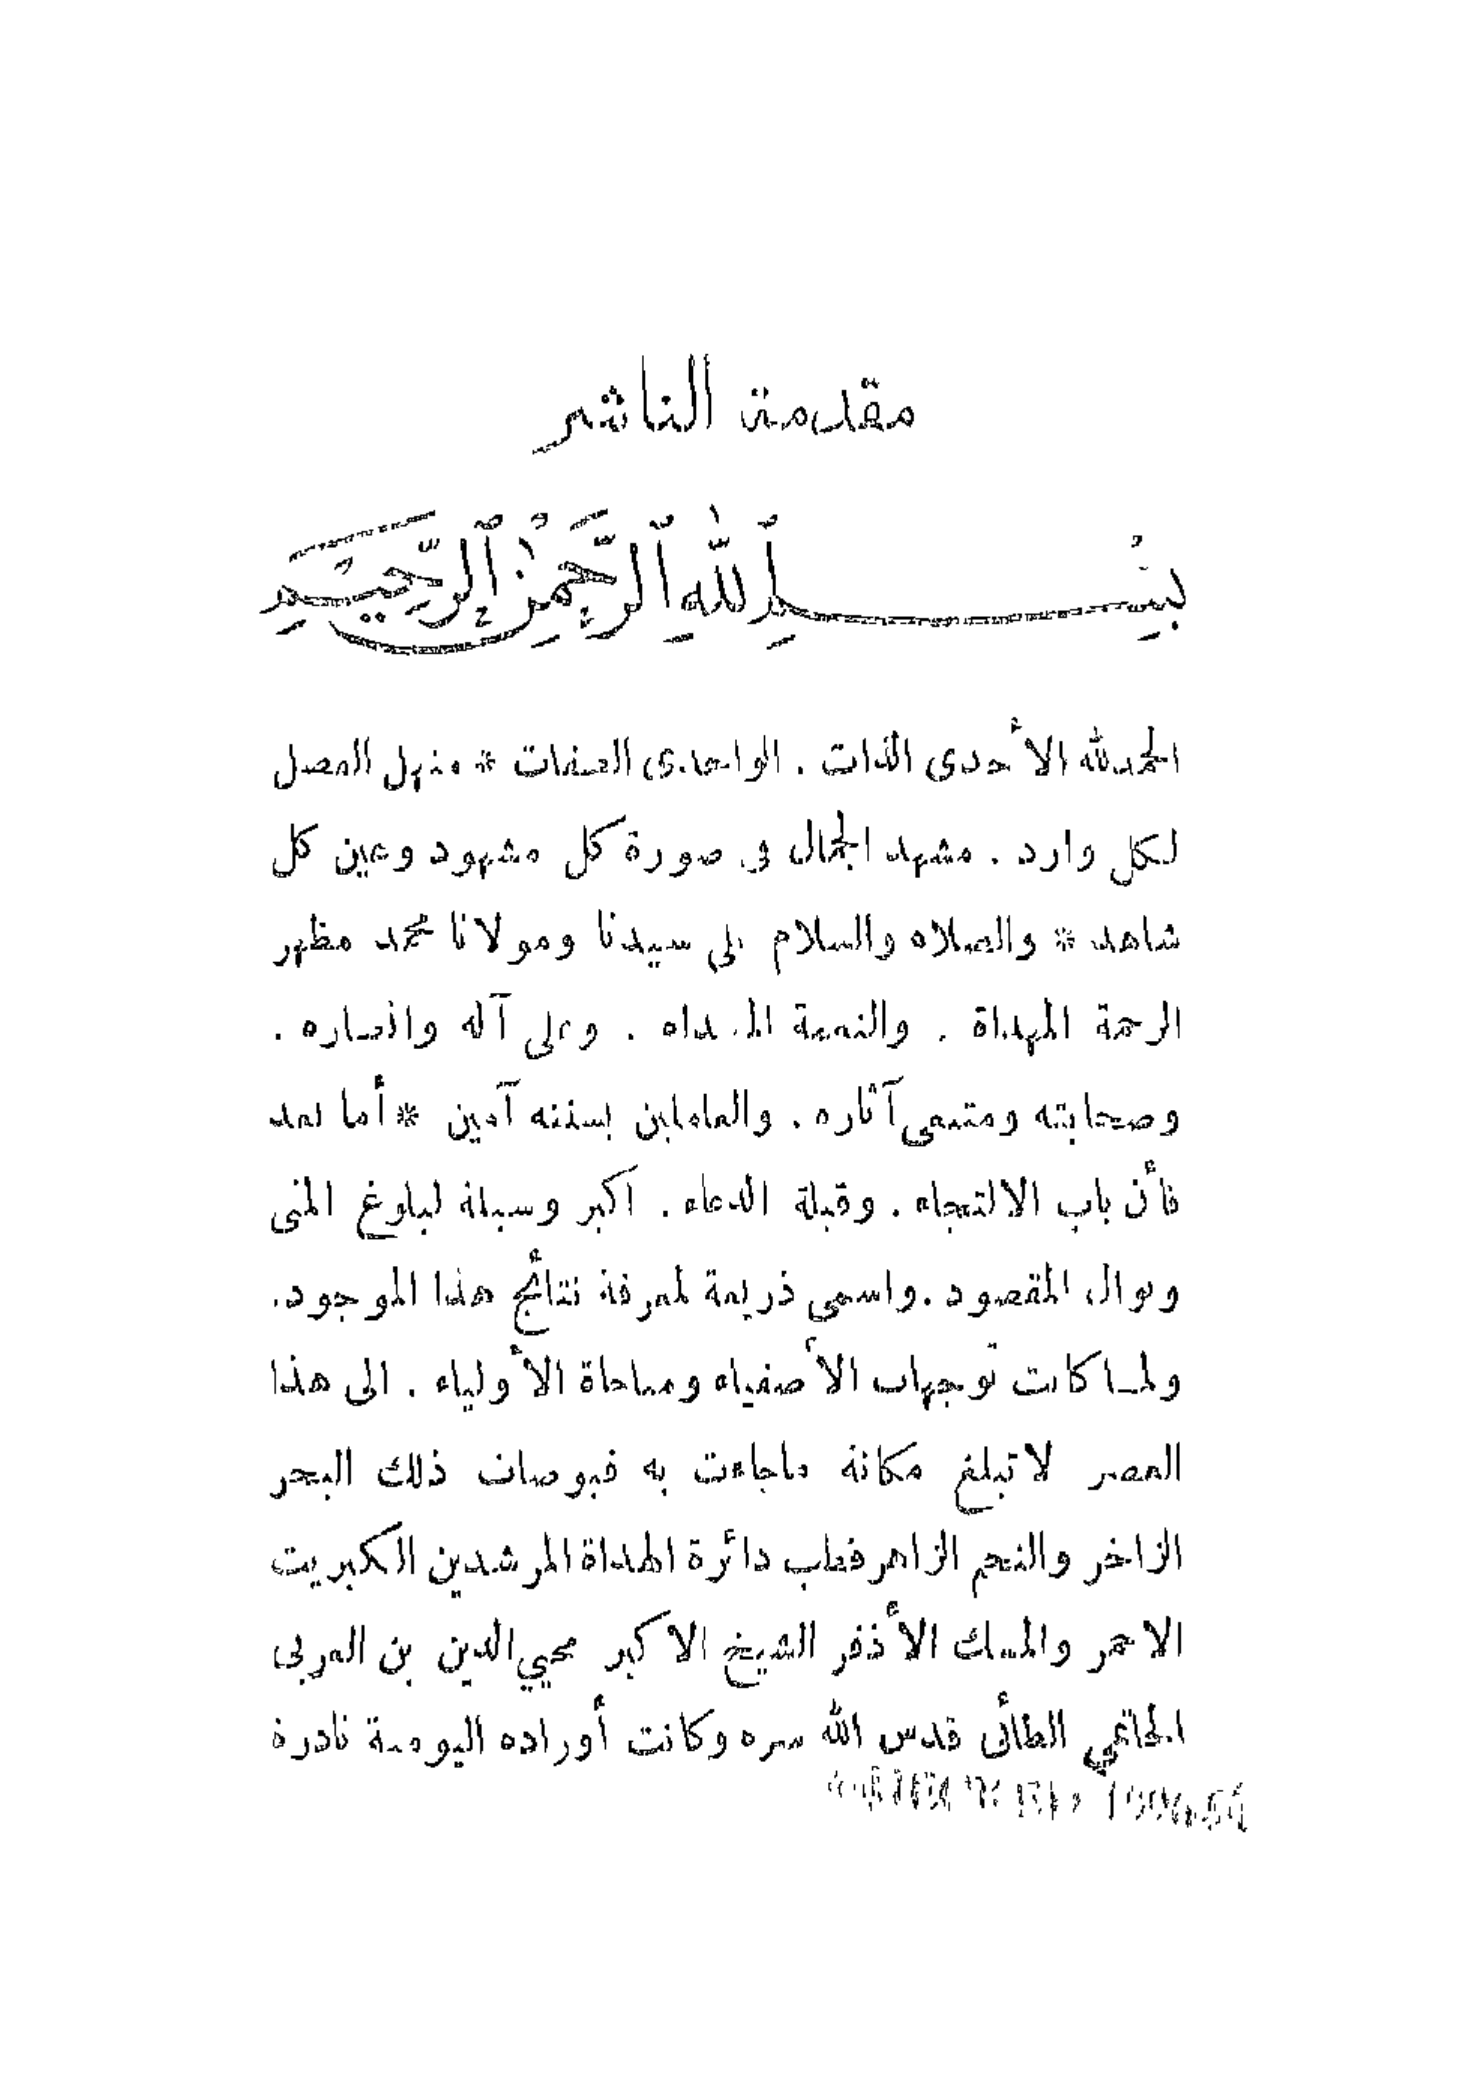 مقدمة الناشر
بِسْمِ ٱللَّهِ ٱلرَّحْمَٰنِ ٱلرَّحِيمِ
الحمدلله الأحدى الذات . الواحدى الصفات * منهل الفضل
لكل وارد . مشهد الجمال فى صورة كل مشهود وعين كل
شاهد * والصلاه والسلام على سيدنا ومولانا محمد مظهر
الرحمة المهداة . والنعمة المسداه . وعلى آله وانصاره .
وصحابته ومتبعى آثاره . والعاملين بسننه آمين * أما بعد
فأن باب الالتجاء . وقبلة الدعاء . اكبر وسيلة لبلوغ المنى
ونوال المقصود . واسمى ذريعة لمعرفة نتائج هذا الموجود .
ولما كانت توجهات الأصفياء ومناجاة الأولياء . الى هذا
العصر لا تبلغ مكانة ماجاءت به فيوضات ذلك البحر
الزاخر والنجم الزاهر قطب دائرة الهداة المرشدين الكبريت
الاحمر والمسك الأذفر الشيخ الاكبر محيي الدين بن العربى
الحاتمي الطائى قدس الله سره وكانت أوراده اليومية نادرة